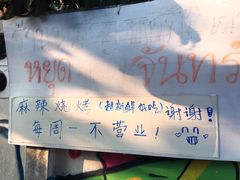 หยุด จันทร์
麻辣烧烤（超新鲜好吃）谢谢！
每周一不营业！